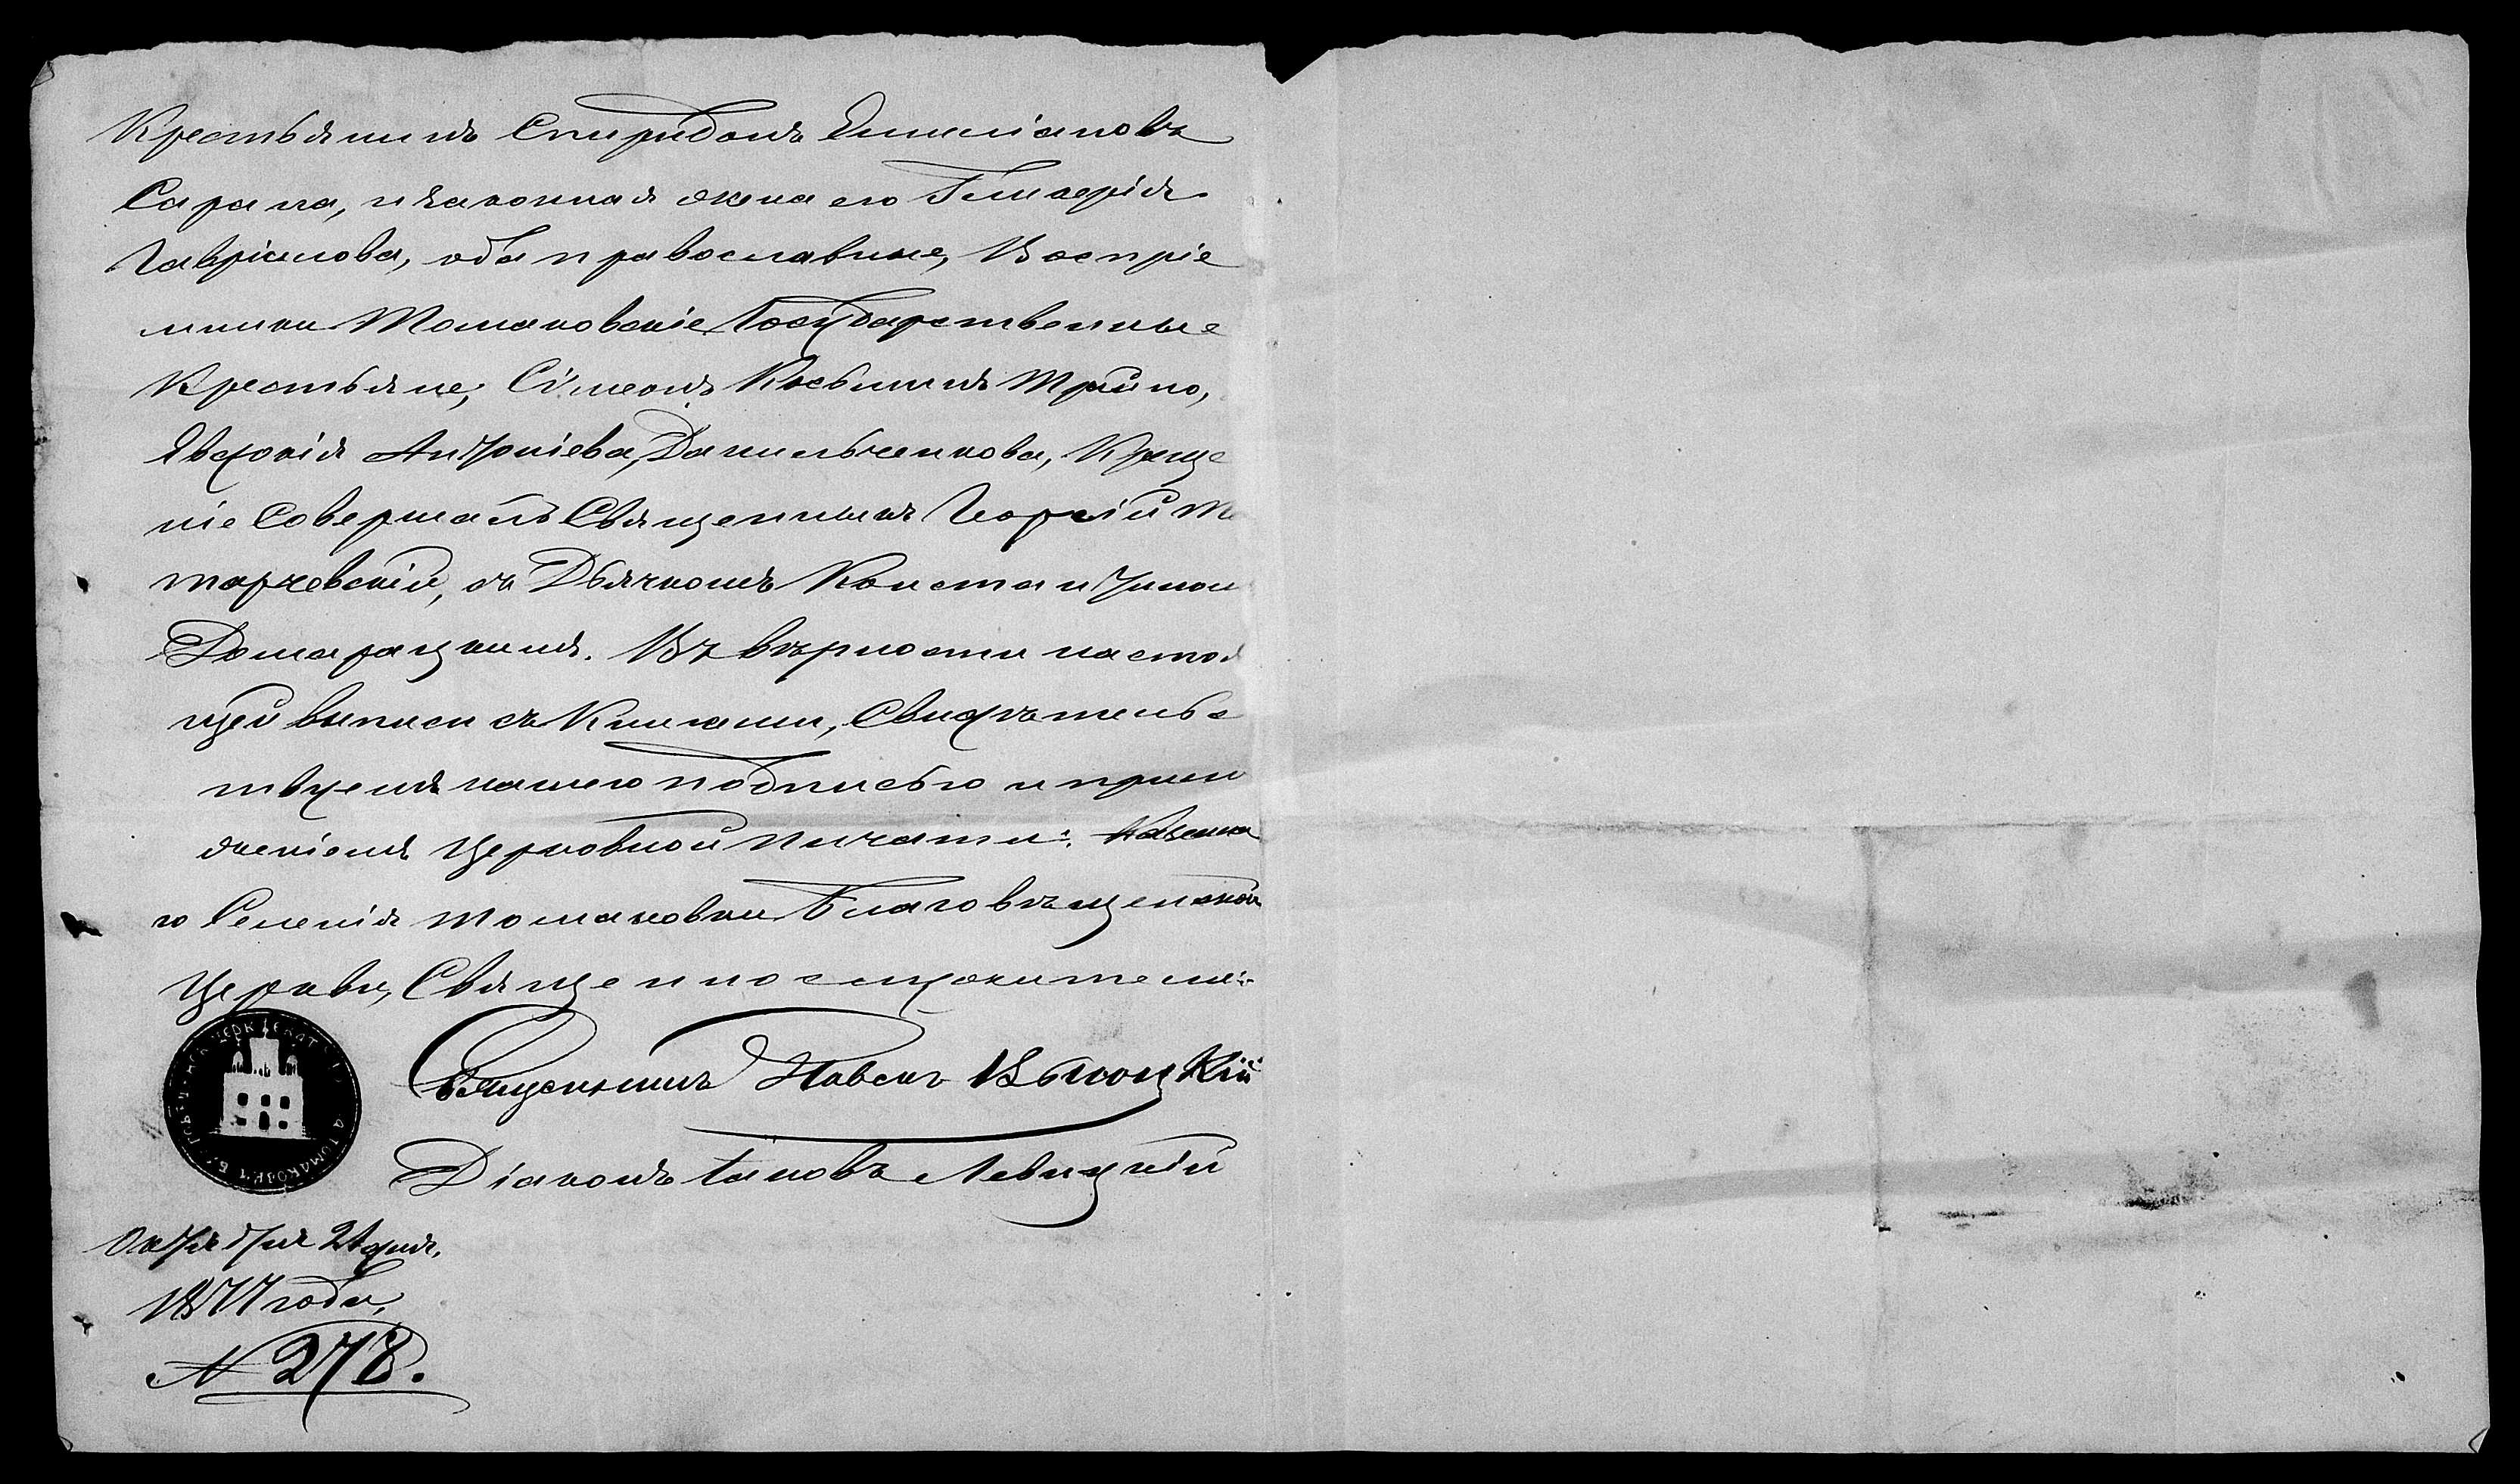 Крестьянинъ Спиридонъ Емиліановъ
Сарана, и законная жена его Гликерія
Гавріилова, оба православные, Воспріе
мники Томаковскіе Государственные
Крестьяне, Сѵмеонъ Косьминъ Трино,
Евдокія Антоніева, Данильченкова, Креще
ніе Совершалъ Священникъ Георгій
съ Дьячкомъ Константином
Домарацкимъ. Въ вѣрности настоя
щей выписи съ Книгами, Свидѣтельс
твуемъ нашею подписью и прило
женіемъ Церковной Печати: Казенна
го Селенія Томаковки Благовѣщенской
Церкви, Священнослужители:
Священникъ Павелъ Высоцкій
Діаконъ Іаковъ Левицкій
Октября 21 дня,
1877 года,
N 278.